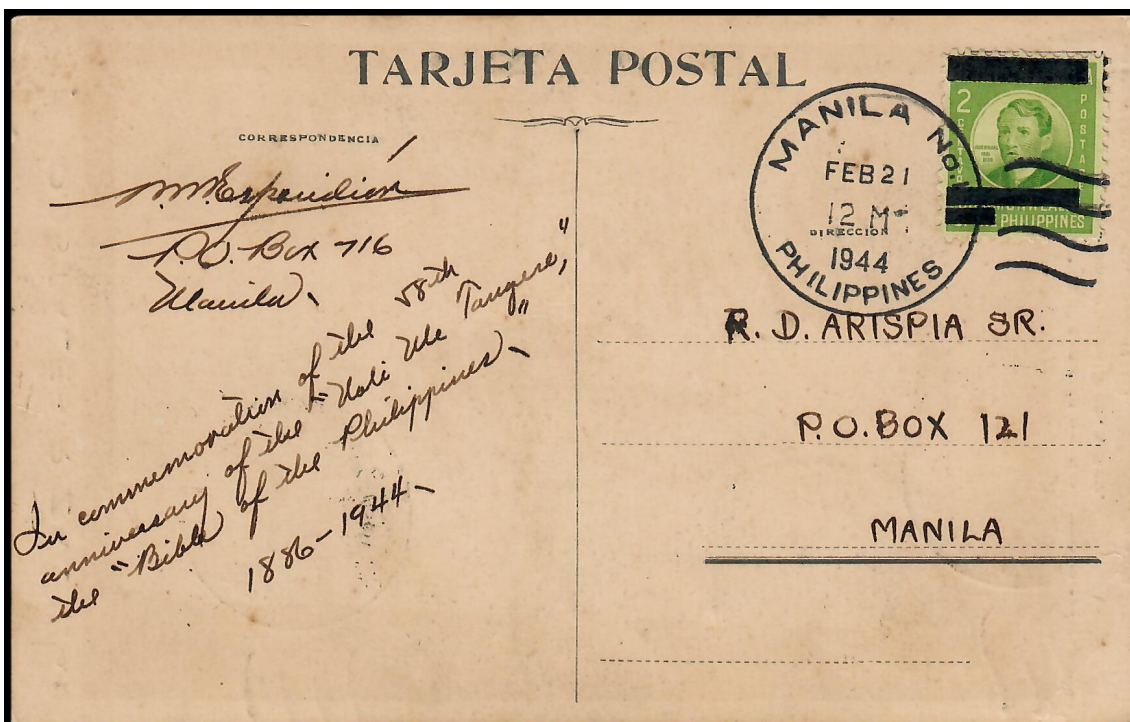 TARJETA POSTAL
CORRESPONDENCIA
P.O. Box 716
Manila
In commemoration of the 58th
anniversary of the "Noli Me Tangere,"
the "Bible of the Philippines"
1886-1944
MANILA No. 1
FEB 21
12 M
DIRECCION
1944
PHILIPPINES
2
CENTAVOS
POSTAGE
PHILIPPINES
R. D. ARISPIA SR.
P.O. BOX 121
MANILA